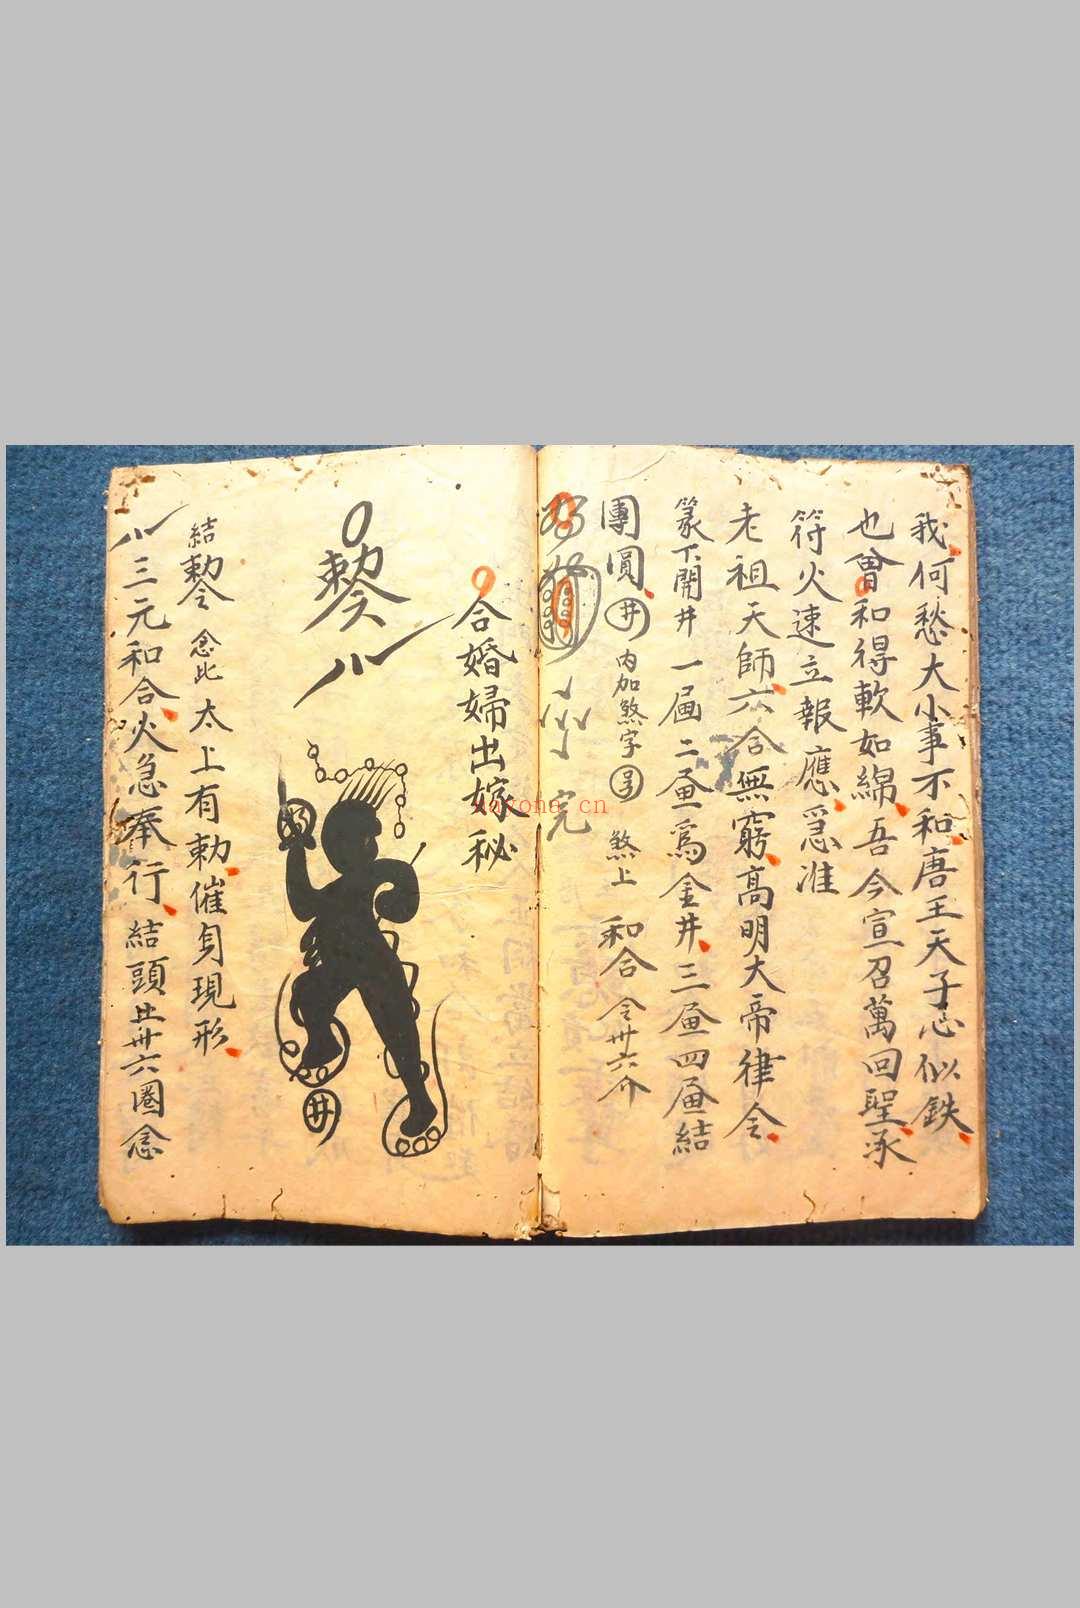 我何愁大小事不和唐王天子心似鉄
也曾和得軟如綿吾今宣召萬回聖承
符火速立報應急准
老祖天師六合無窮高明大帝律令
篆下開井一畐二畐爲金井三畐四畐結
團圓井内加煞字 煞上 和合 令卅六个
完
合婚婦出嫁秘
勅令
井
結勅令 念此 太上有勅催身現形
三元和合火急奉行結頭上卅六圈念
nayona.cn